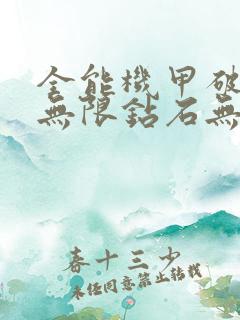 全能機甲破
無限鈷石無
春十三少
未經同意禁止轉載